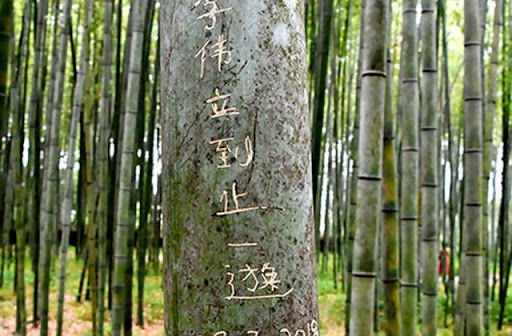 李伟立到止一遊
2018